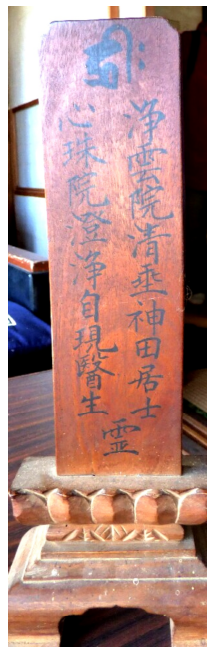 浄雲院清垂神田居士
心珠院澄浄自現醫生
霊